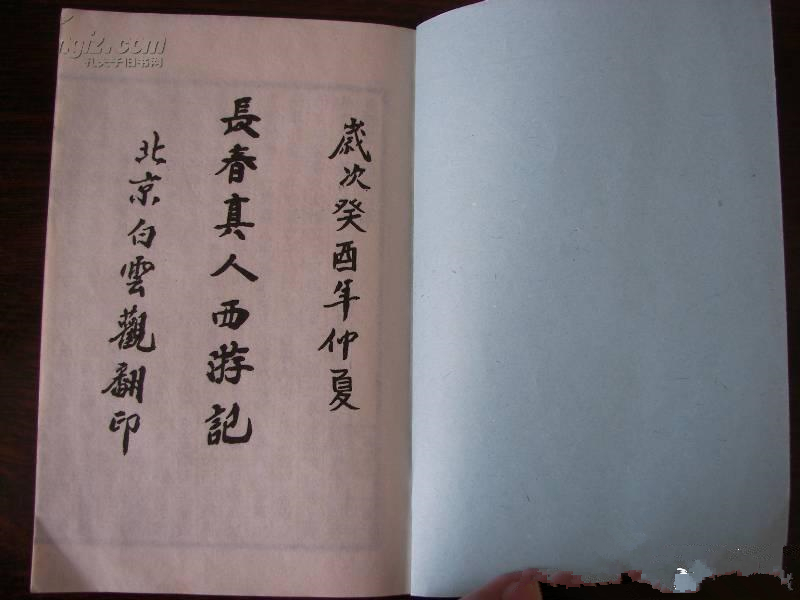 歲次癸酉年仲夏
長春真人西游記
北京白雲觀翻印
孔夫子旧书网